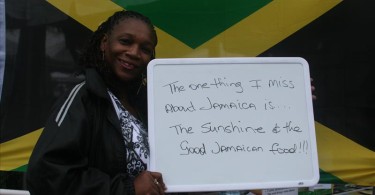 The one thing I miss
About Jamaica is...
The Sunshine & the
Good Jamaican food!!!